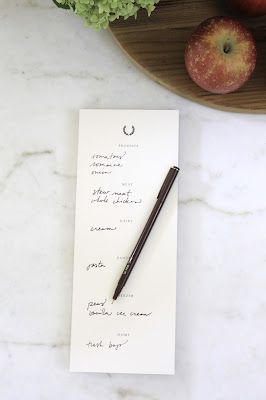 PRODUCE
tomatoes
romaine
onion
MEAT
stew meat
whole chicken
DAIRY
cream
pasta
peas
vanilla ice cream
HOME
trash bags